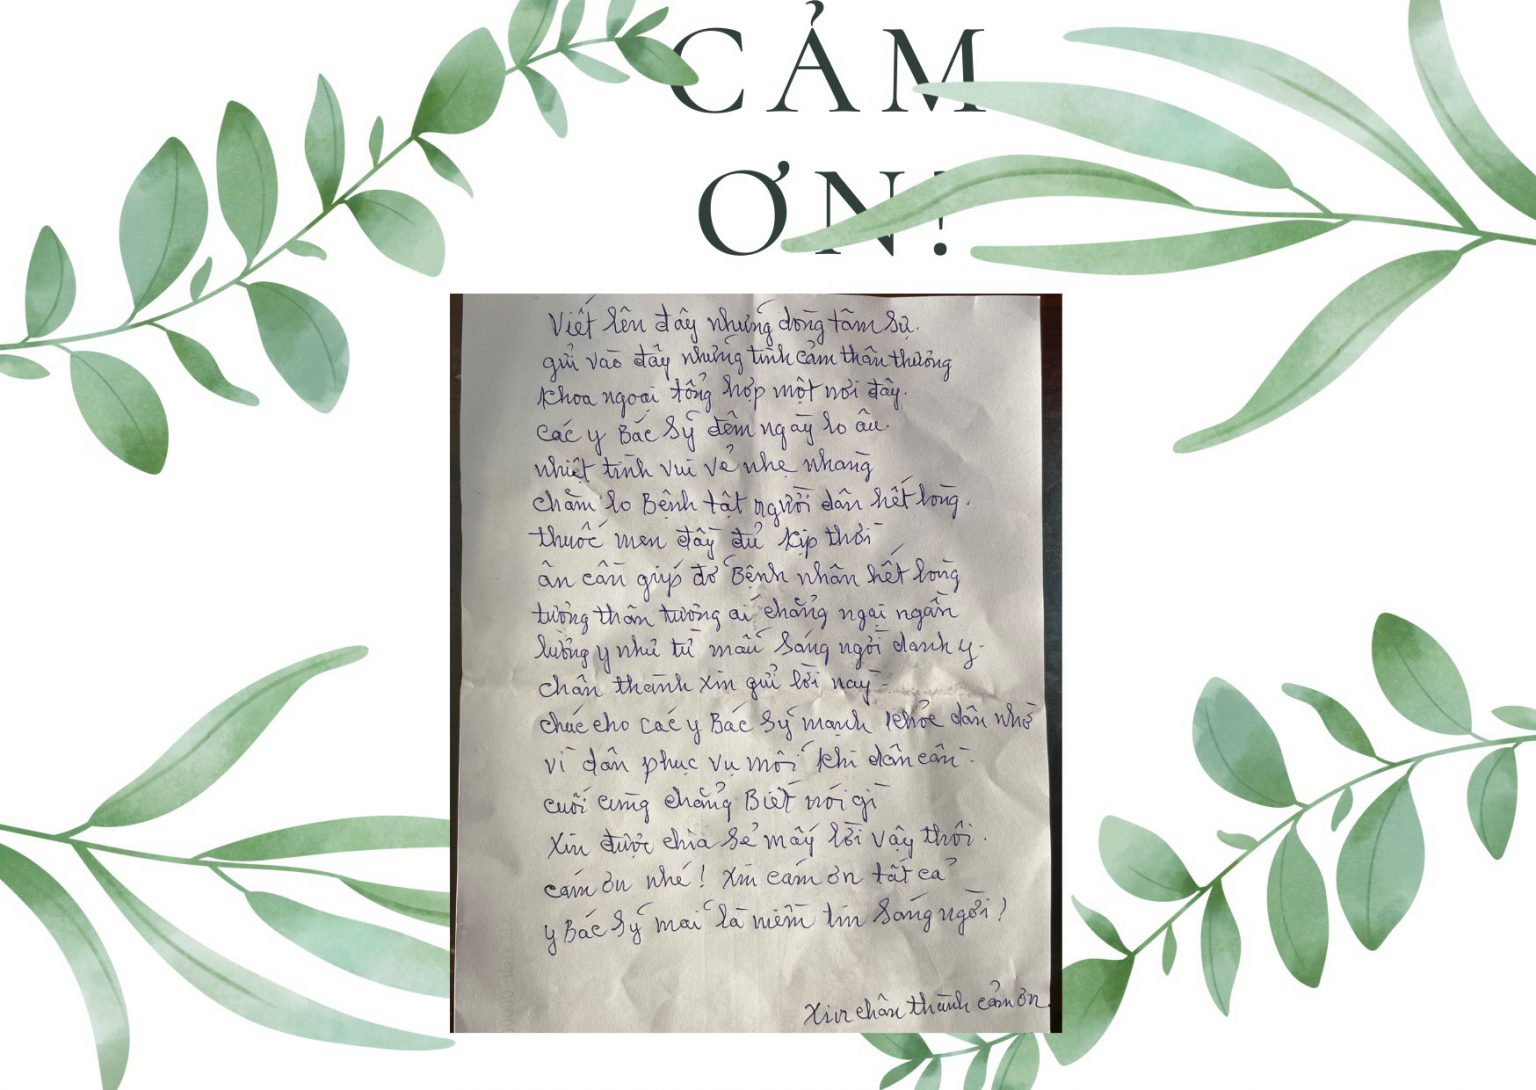 CẢM
ƠN!
Viết lên đây những dòng tâm sự.
gửi vào đây những tình cảm thân thương
khoa ngoại tổng hợp một nơi đây.
các y Bác Sỹ đêm ngày lo âu.
nhiệt tình vui vẻ nhẹ nhàng
chăm lo Bệnh tật người dân hết lòng.
thuốc men đầy đủ kịp thời
ân cần giúp đỡ Bệnh nhân hết lòng
tương thân tương ái chẳng ngại ngần
lương y như từ mẫu Sáng ngời danh y.
chân thành xin gửi lời này.
chúc cho các y Bác Sỹ mạnh khỏe dân nhờ
vì dân phục vụ mỗi khi dân cần.
cuối cùng chẳng Biết nói gì
Xin được chia sẻ mấy lời vậy thôi.
cám ơn nhé! Xin cám ơn tất cả
y Bác Sỹ mãi là niềm tin Sáng ngời!
Xin chân thành cảm ơn.